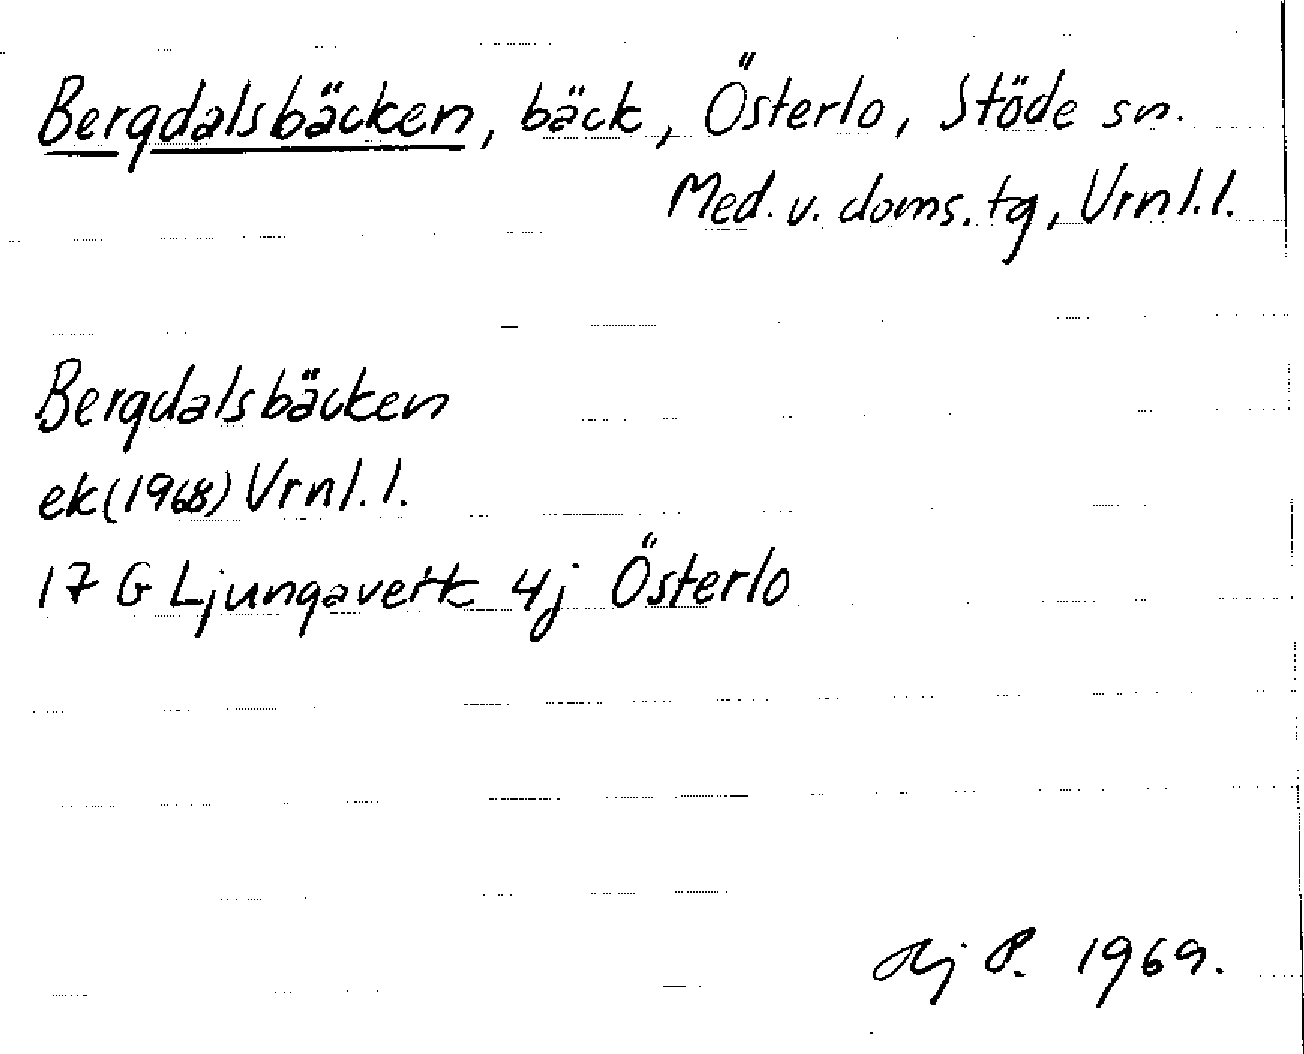 Bergdalsbäcken, bäck, Österlo, Stöde sn.
Med. v. doms. tg, Vrnl. l.
Bergdalsbäcken
ek (1968) Vrnl. l.
17 G Ljungaverk 4j Österlo
P. 1969.